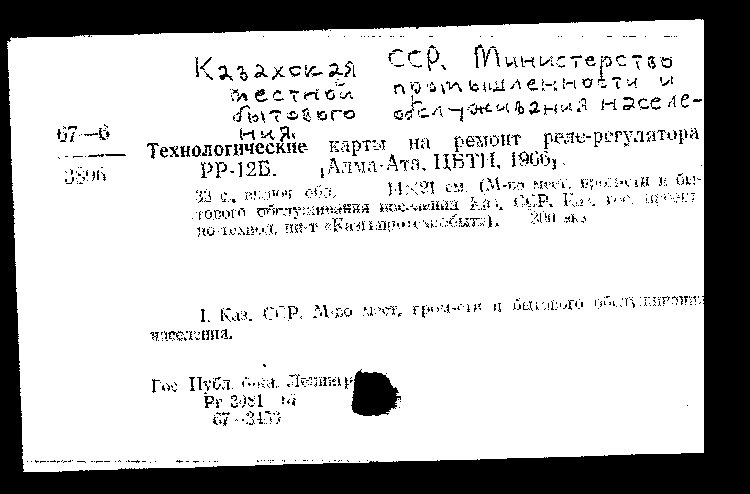 Казахская ССР. Министерство
местной промышленности и
бытового обслуживания населе-
ния.
67—6
Технологические карты на ремонт реле-регулятора
РР-12Б. [Алма-Ата, ЦБТИ, 1966].
33 с., включ. обл. 14×21 см. (М-во мест. пром-сти и бы-
тового обслуживания населения Каз. ССР. Каз. гос. проект
но-технол. ин-т
200 экз
I. Каз. ССР. М-во мест. пром-сти и бытового обслуживания
населения.
Гос Публ. биб.
67—